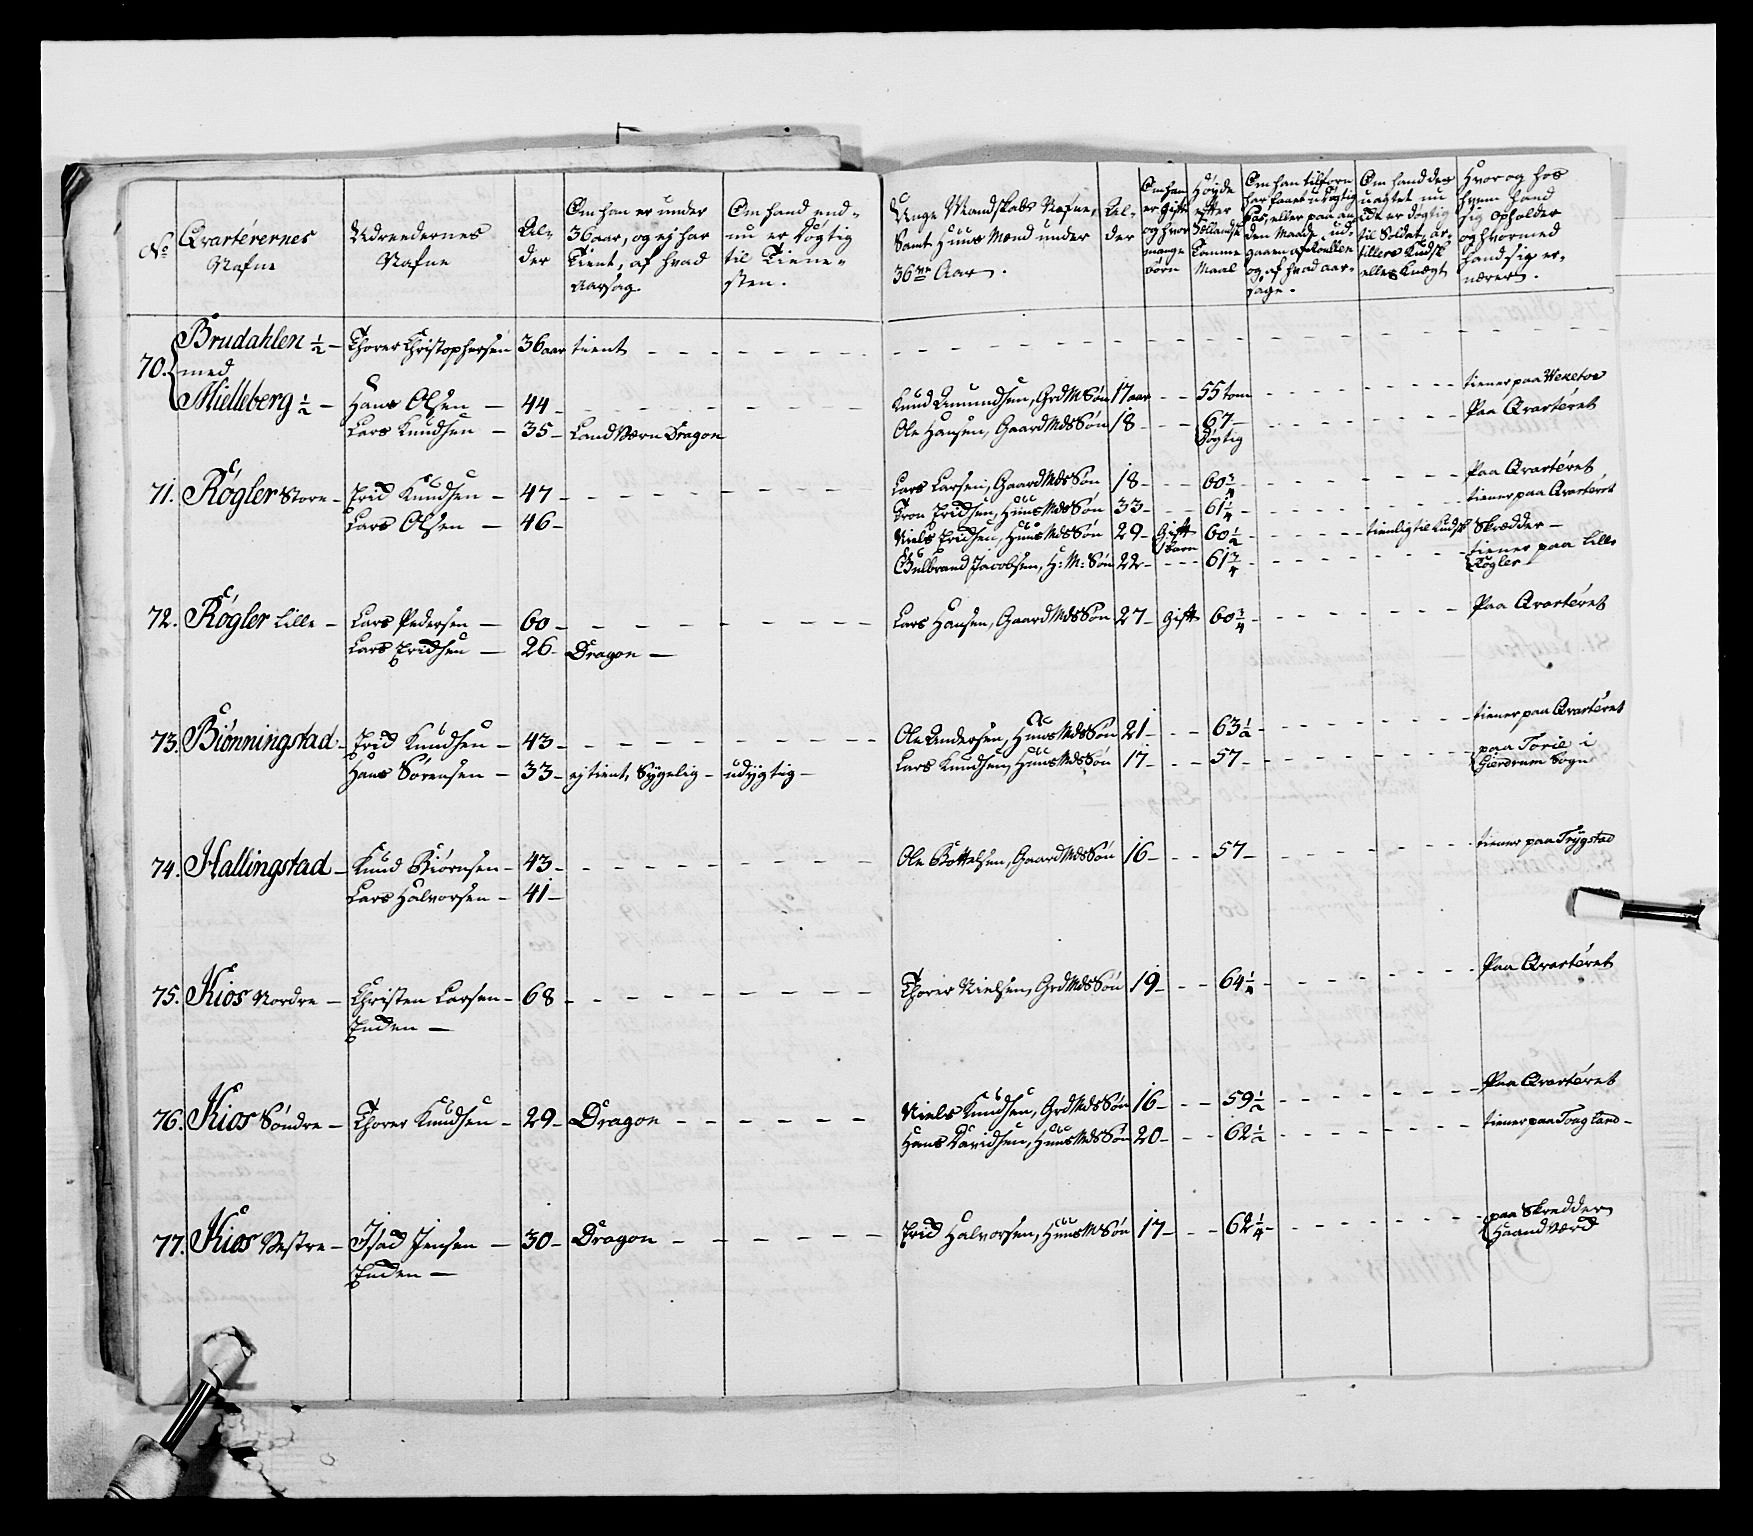 No
Qvarterernes
Nafne
Udreedernes
Nafne
Al-
der
Om han er under
36 aar, og ej har
Tient, af hvad
Aarsag.
Om hand end-
nu er dygtig
til Tiene-
sten.
Unge Mandskabs Nafne,
Samt Huus Mænd under
36 Aar.
Al-
der
Om han
er gift
og hvor
mange
børn
Høyde
efter
Sollandsk
Tomme
Maal
Om han tilforn
har været udygtig
den Maade ud-
og af hvad aar-
sage.
Om hand des
uagtet nu
ydt er dygtig
til Soldat, ar-
tillerie Kudsk
eller knægt
Hvor og hos
hvem hand
sig opholder
og hvormed
hand sig er-
nærer.
70. Brudahlen ½ — Thorer Christophersen 36 aar tient
med
Mielleberg ½ — Hans Olsen — 44 — Knud Amundsen, Grd M Søn 17 aar 55 tom tiener paa
Lars Knudsen — 35 — Land Værn Dragon Ole Hansen, Gaard Mds Søn 18 — 67 — Paa Qvarteret
Dygtig
71. Røgler Store — Erich Knudsen — 47 — Lars Larsen, Gaard Mds Søn 18 — 60¾ Paa Qvarteret
Lars Olsen — 46 — Tron Erichsen, Huus Mds Søn 33 — 61¼ tiener paa Qvarteret
Niels Erichsen, Huus Mds Søn 29 — Gift 60½ tienlig til Kudsk Skrædder —
1 barn
Gulbrand Jacobsen, H: M: Søn 22 — 61¾ tiener paa Lille
Røgler
72. Røgler Lille — Lars Pedersen — 60 — Lars Hansen, Gaard Mds Søn 27 — gift 60¾ Paa Qvarteret
Lars Erichsen — 26 — Dragon —
73. Biønningstad — Erich Knudsen — 43 — Ole Andersen, Huus Mds Søn 21 — 63½ tiener paa Qvarteret
Hans Sørensen — 33 — ej tient, Sygelig — udygtig — Lars Knudsen, Huus Mds Søn 17 — 57 — paa Torie i
Gierdrum Sogn
74. Hallingstad — Knud Biørnsen — 43 — Ole Bottelsen, Gaard Mds Søn 16 — 57 — tiener paa Trygstad
Lars Halvorsen — 41 —
75. Kios Nordre — Christen Larsen — 68 — Thorer Nielsen, Grd Mds Søn 19 — 64¼ Paa Qvarteret
Enden —
76. Kios Søndre — Thorer Knudsen — 29 — Dragon — Niels Knudsen, Grd Mds Søn 16 — 59½ Paa Qvarteret
Hans Davidsen, Huus Mds Søn 20 — 62½ tiener paa
77. Kios Vestre — Isach Jensen — 30 — Dragon — Erich Halvorsen, Huus M Søn 17 — 62¼ paa Skredder
Haand Værch
Enden —